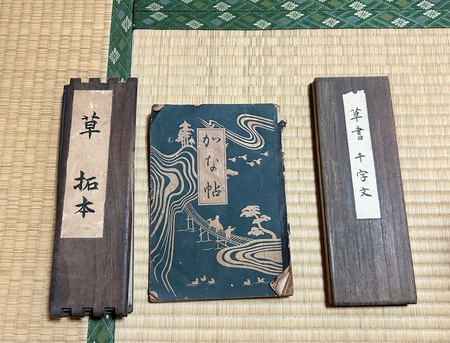 草 拓本
かな帖
草書 千字文